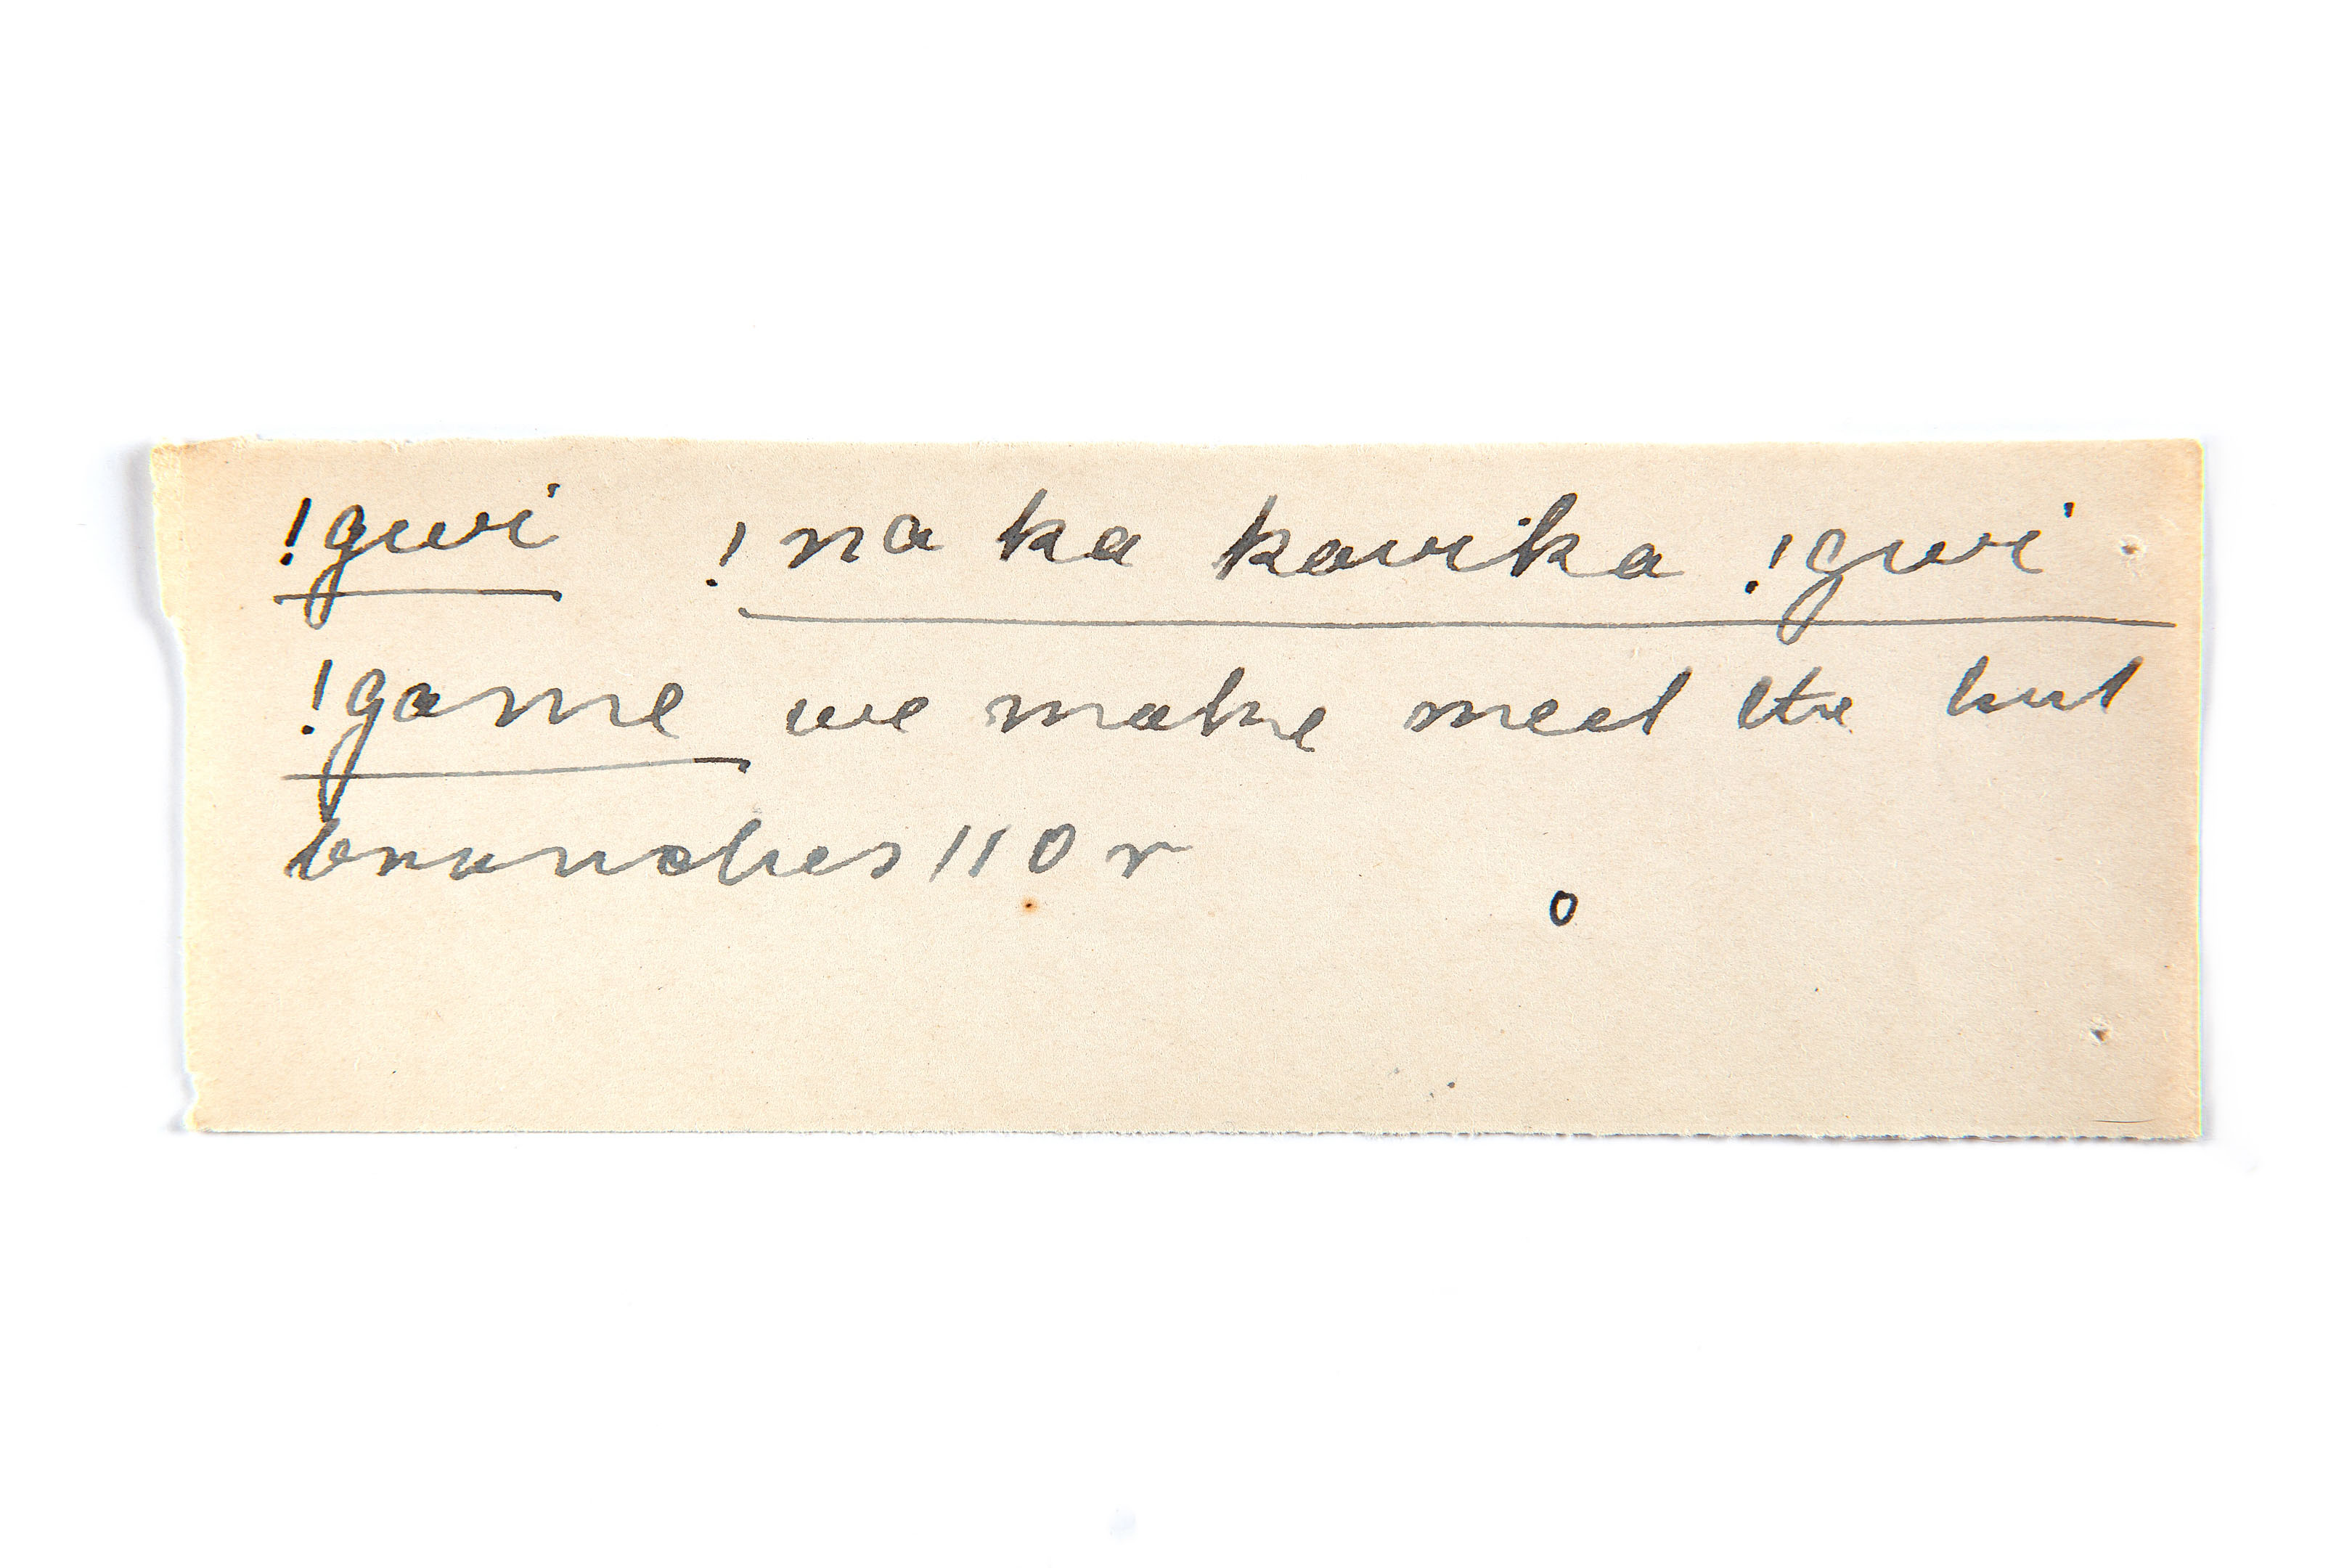 !gwi !na ka kavika !gwi
!game we make meet the hut
branches //0 r
o